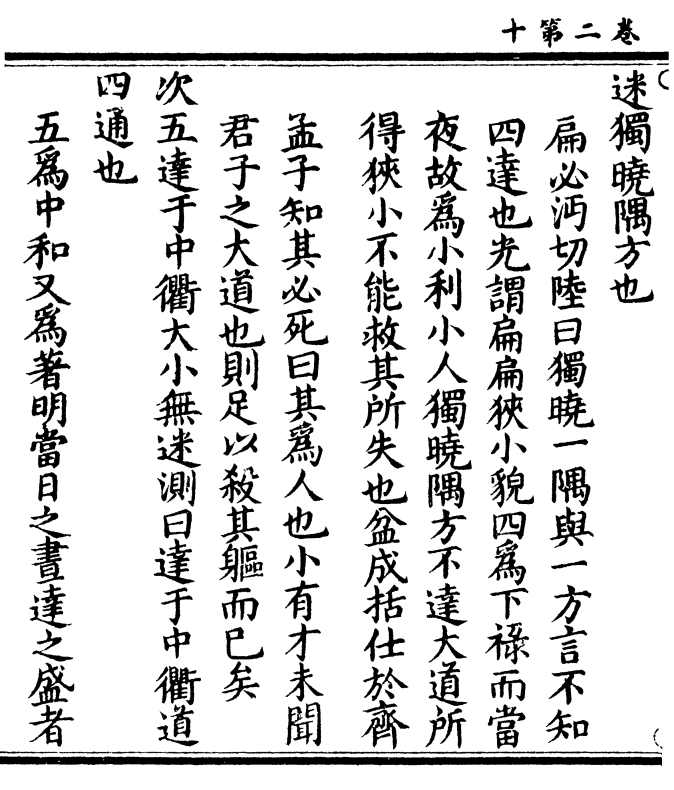 卷二第十
迷獨曉隅方也
扁必沔切陸曰獨曉一隅與一方言不知
四達也光謂扁扁狹小貌四爲下祿而當
夜故爲小利小人獨曉隅方不達大道所
得狹小不能救其所失也盆成括仕於齊
孟子知其必死曰其爲人也小有才未聞
君子之大道也則足以殺其軀而已矣
次五達于中衢大小無迷測曰達于中衢道
四通也
五爲中和又爲著明當日之晝達之盛者